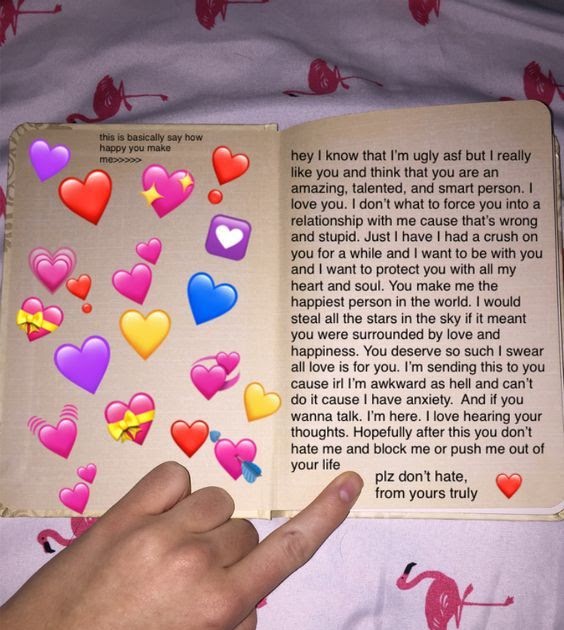 this is basically say how
happy you make
me>>>>>
hey I know that I'm ugly asf but I really
like you and think that you are an
amazing, talented, and smart person. I
love you. I don't what to force you into a
relationship with me cause that's wrong
and stupid. Just I have I had a crush on
you for a while and I want to be with you
and I want to protect you with all my
heart and soul. You make me the
happiest person in the world. I would
steal all the stars in the sky if it meant
you were surrounded by love and
happiness. You deserve so such I swear
all love is for you. I'm sending this to you
cause irl I'm awkward as hell and can't
do it cause I have anxiety.  And if you
wanna talk. I'm here. I love hearing your
thoughts. Hopefully after this you don't
hate me and block me or push me out of
your life
plz don't hate,
from yours truly